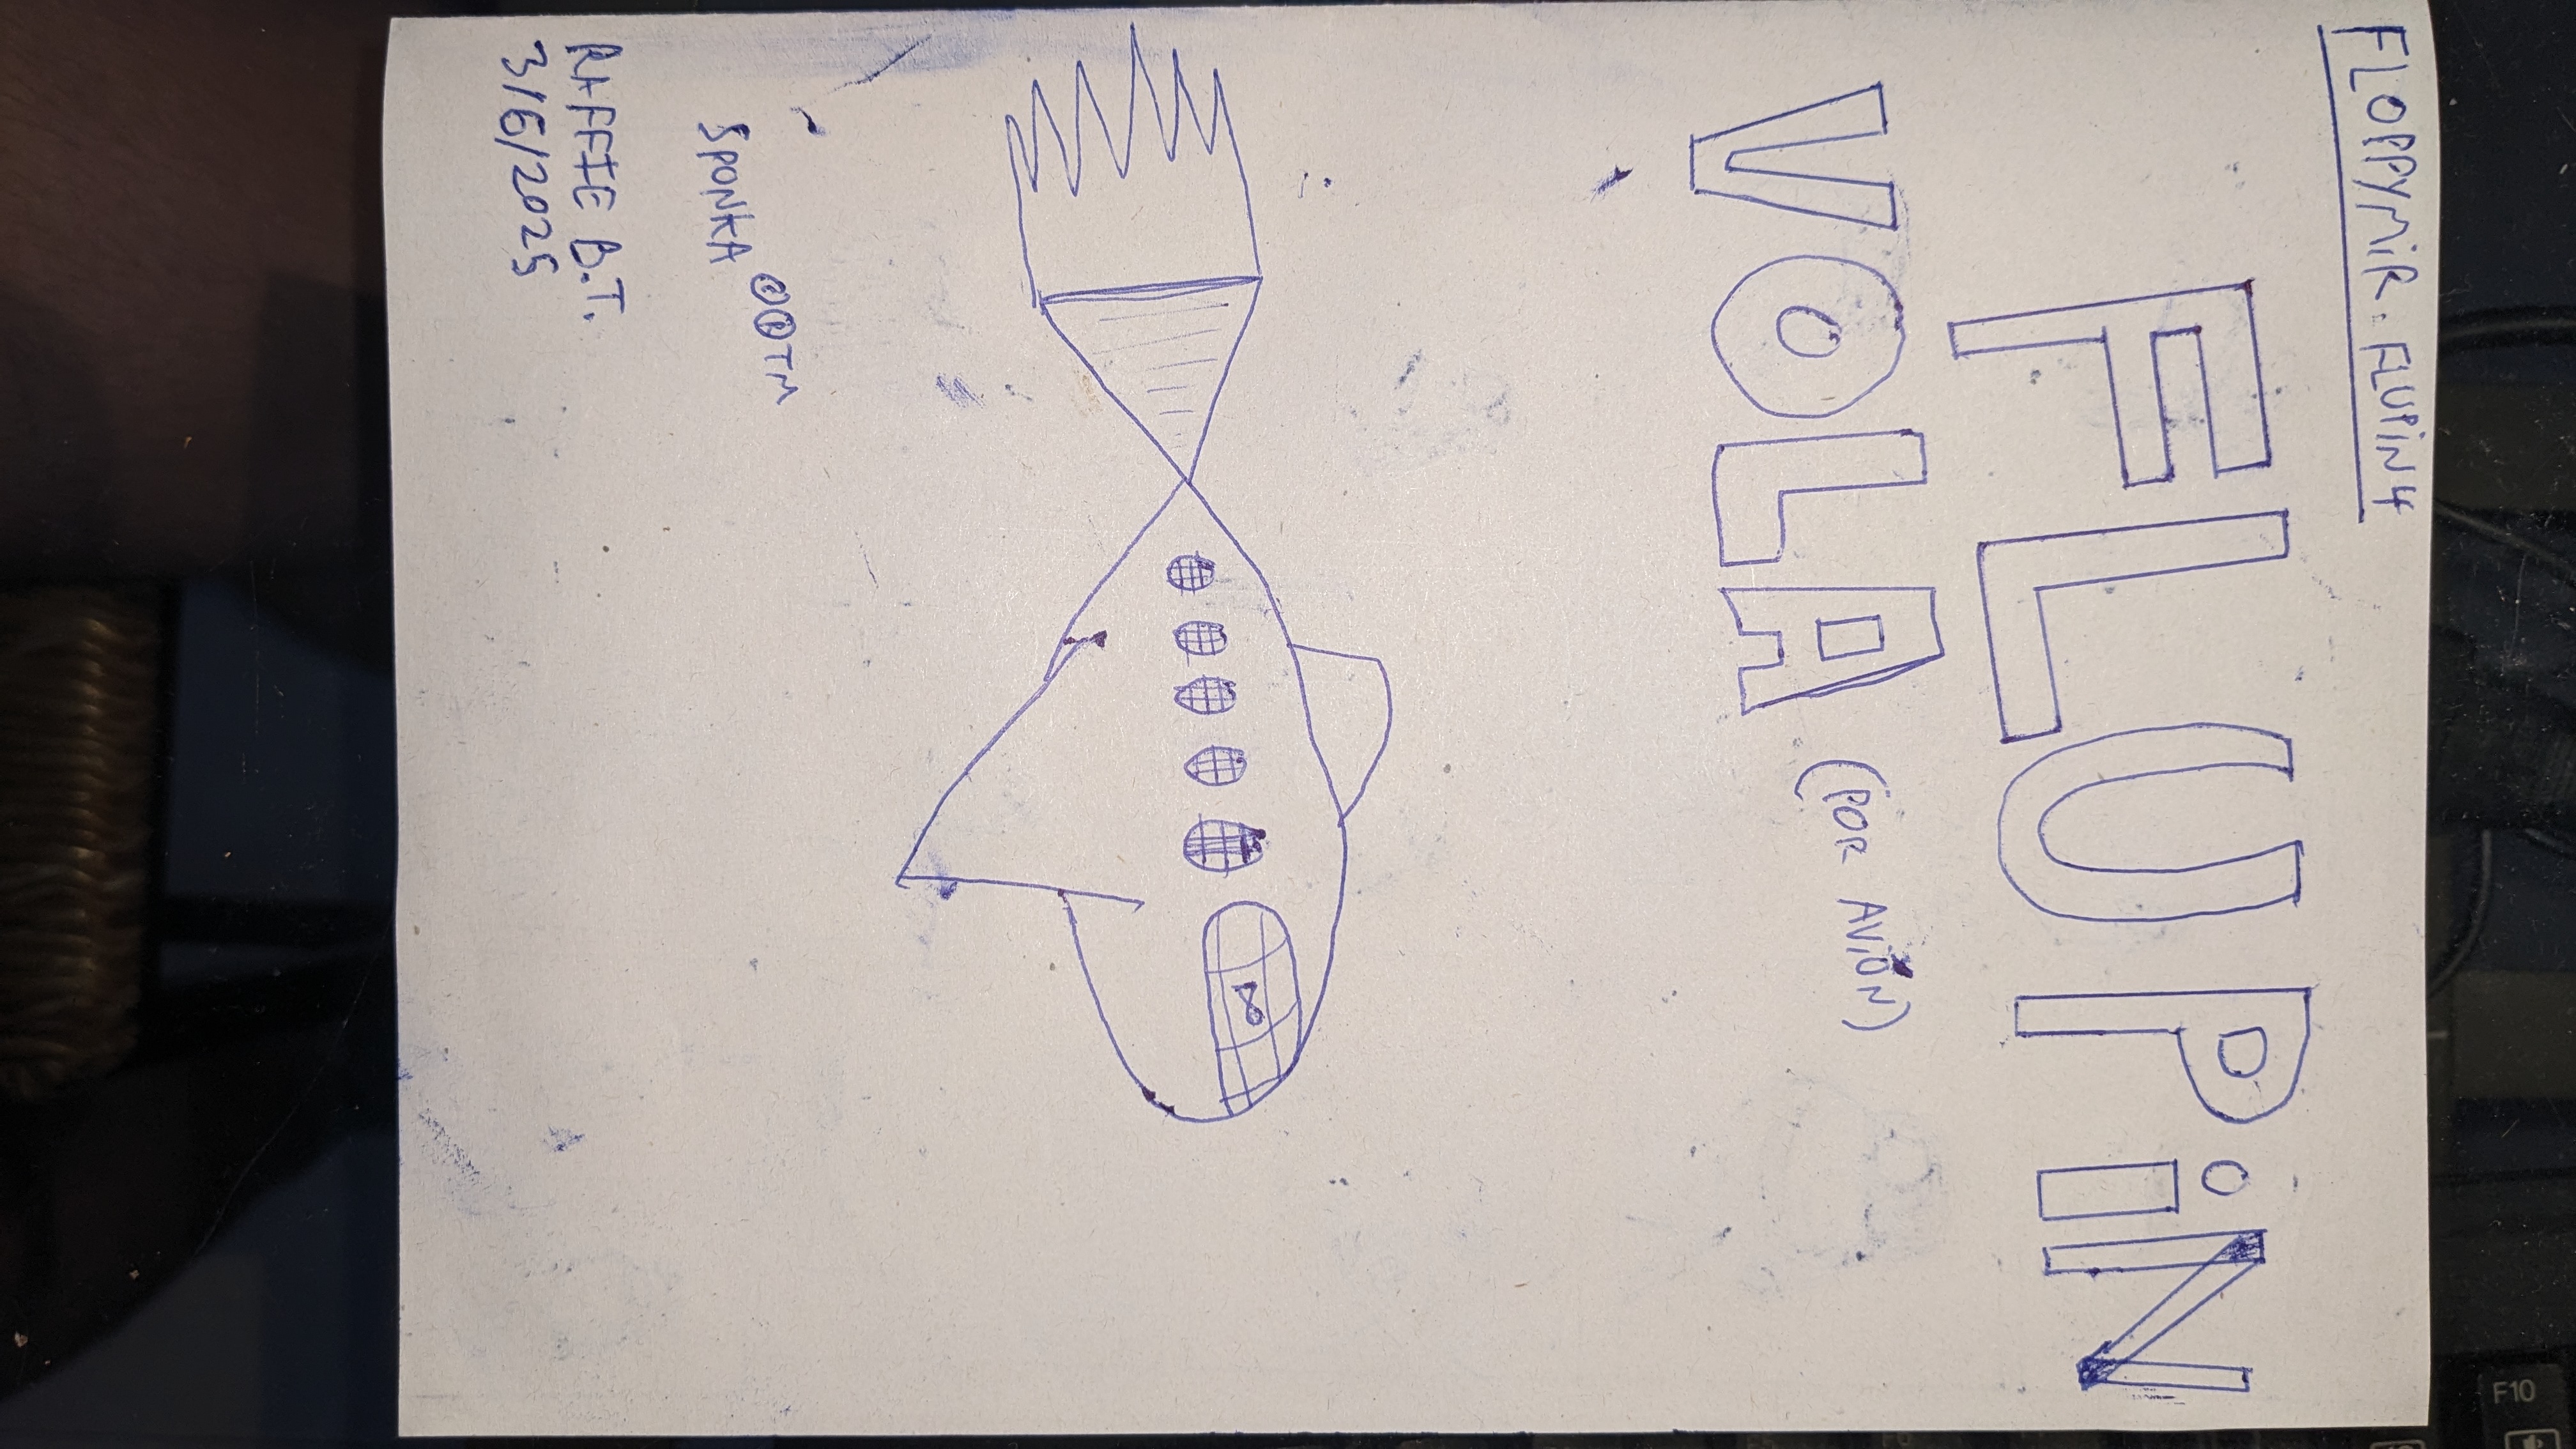 FLOPPYMiR. FLUPiN4
FLUPiN
VOLA (POR AViÓN)
SPONKA ©®TM
RAFFIE B.T.
3/6/2025
F10